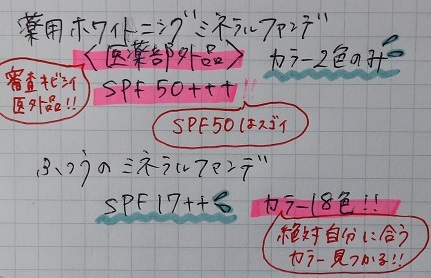 薬用ホワイトニングミネラルファンデ
<医薬部外品>
カラー2色のみ
審査キビシイ
医外品!!
SPF50+++
!!
SPF50はスゴイ
ふつうのミネラルファンデ
SPF17++
カラー18色!!
絶対自分に合う
カラー見つかる!!